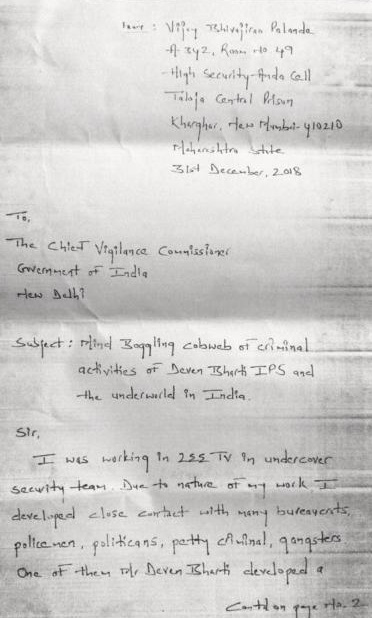 From : Vijay Bhivajirao Palande
A 342, Room No. 49
High Security-Anda Cell
Taloja Central Prison
Kharghar, New Mumbai-410210
Maharashtra State
31st December, 2018
To,
The Chief Vigilance Commissioner
Government of India
New Delhi
Subject : Mind Boggling cobweb of criminal
activities of Deven Bharti IPS and
the underworld in India.
Sir,
I was working in TV in undercover
security team. Due to nature of my work I
developed close contact with many
policemen, politicans, petty criminal, gangsters
One of them Mr Deven Bharti developed a
Contd on page No. 2